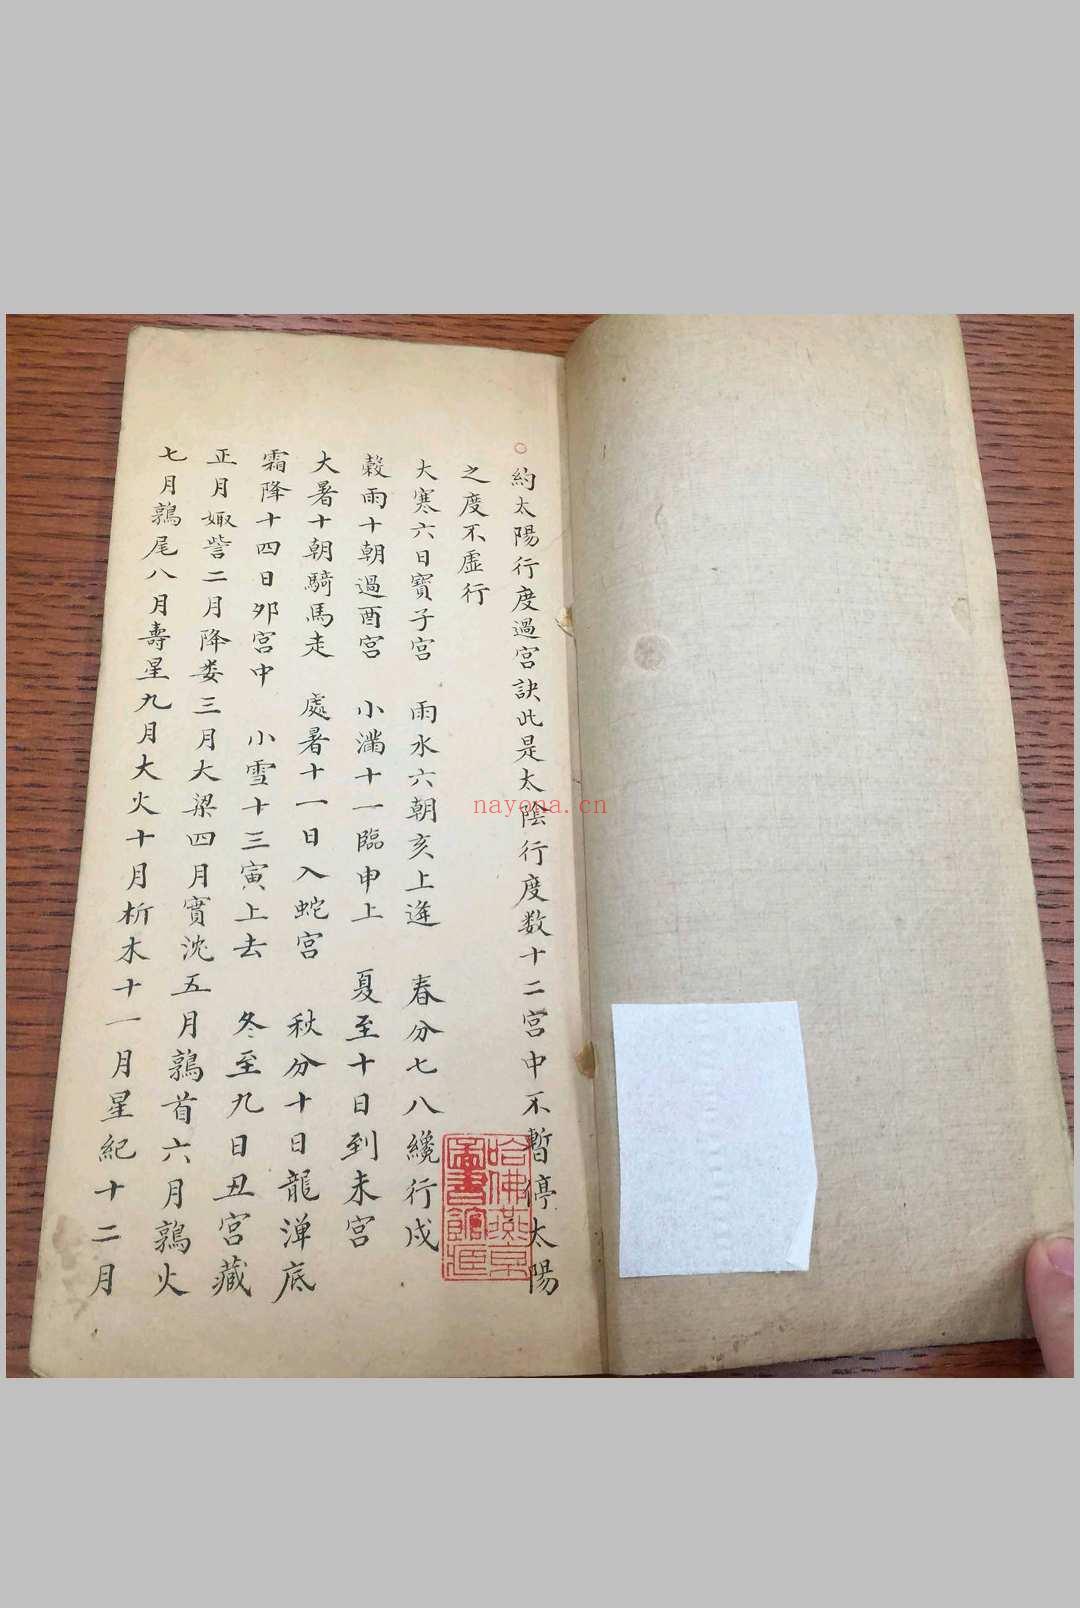 ○約太陽行度過宮訣此是太陰行度数十二宮中不暫停太陽
之度不虛行
大寒六日寶子宮　雨水六朝亥上逢　春分七八纔行戌
穀雨十朝過酉宮　小滿十一臨申上　夏至十日到未宮
大暑十朝騎馬走　處暑十一日入蛇宮　秋分十日龍潭底
霜降十四日夘宮中　小雪十三寅上去　冬至九日丑宮藏
正月娵訾二月降婁三月大梁四月實沈五月鶉首六月鶉火
七月鶉尾八月壽星九月大火十月析木十一月星紀十二月
哈佛燕京
圖書館藏
nayona.cn